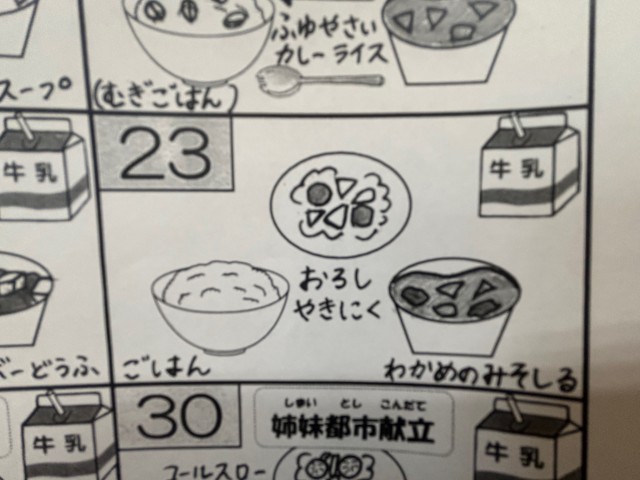 ふゆやさい
カレーライス
スープ
(むぎごはん)
牛乳
23
牛乳
おろし
やきにく
ーどうふ
ごはん
わかめのみそしる
30
しまい とし こんだて
姉妹都市献立
牛乳
牛乳
コールスロー